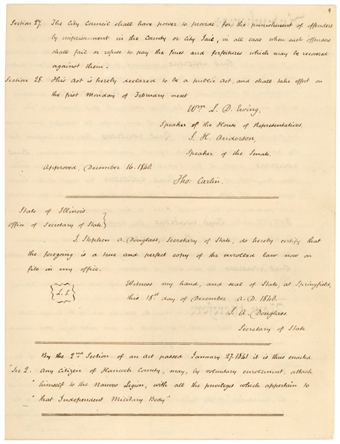 Section 27. The City Council shall have power to provide for the punishment of offenders
by imprisonment in the County or City Jail, in all cases when such offenders
shall fail or refuse to pay the fines and forfeitures which may be recovered
against them.
Section 28. This Act is hereby declared to be a public Act, and shall take effect on
the first Monday of February next
Wm. L. D. Ewing,
Speaker of the House of Representatives.
S. H. Anderson,
Speaker of the Senate.
Approved, December 16. 1840.
Tho: Carlin.
State of Illinois.
Office of Secretary of State}
I. Stephen A. Douglass, Secretary of State, do hereby certify that
the foregoing is a true and perfect copy of the enrolled law now on
file in my office.
{L.S.}
Witness my hand, and seal of State, at Springfield,
this 18th day of December A.D. 1840.
S. A. Douglass,
Secretary of State
By the 2nd Section of an Act passed January 27. 1841 it is thus enacted
"Sec 2. Any citizen of Hancock County, may, by voluntary enrolment, attach
"himself to the Nauvoo Legion, with all the privileges which appertain to
"that Independent Military Body"